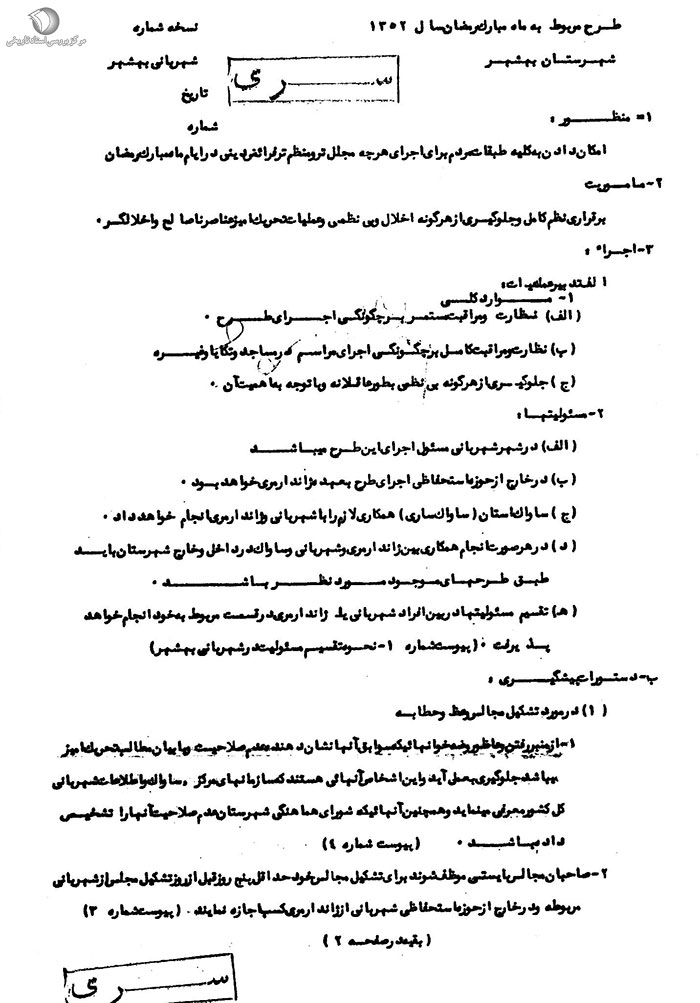 مرکز بررسی اسناد تاریخی
طرح مربوط به ماه مبارک رمضان سال ۱۳۵۲ نسخه شماره
شهرستان بهشهر شهربانی بهشهر
سری
تاریخ
شماره
۱= منظور :
امکان دادن به کلیه طبقات مردم برای اجرای هرچه مجلل تر و منظم تر فرائض دینی در ایام ماه مبارک رمضان
۲-ماموریت
برقراری نظم کامل و جلوگیری از هرگونه اخلال وبی نظمی و عملیات تحریک امیز عناصر ناصالح واخلالگر ۰
۳-اجراء :
الف تدبیر عملیات:
۱- موارد کلی
(الف) نظارت ومراقبت مستمر بر چگونگی اجرای طرح ۰
(ب) نظارت ومراقبت کامل برچگونگی اجرای مراسم در مساجد وتکایا وغیره
(ج) جلوگیری از هرگونه بی نظمی بطور عاقلانه وبا توجه به اهمیت آن ۰
۲-مسئولیتها :
(الف) در شهر شهربانی مسئول اجرای این طرح میباشد
(ب) در خارج از حوزه استحفاظی اجرای طرح بعهده ژاندارمری خواهد بود ۰
(ج) ساواک استان (ساواک ساری) همکاری لازم را با شهربانی وژاندارمری انجام خواهد داد ۰
(د) در هر صورت انجام همکاری بین ژاندارمری وشهربانی وساواک در داخل وخارج شهرستان باید
طبق طرحهای موجود مورد نظر باشد ۰
(هـ) تقسیم مسئولیتها در بین افراد شهربانی یا ژاندارمری در قسمت مربوط به خود انجام خواهد
پذیرفت ۰ (پیوست شماره ۱-نحوه تقسیم مسئولیت در شهربانی بهشهر)
ب-دستورات پیشگیری :
(۱) در مورد تشکیل مجالس وعظ وخطابه
۱-از منبر رفتن وعاظ وروضه خوانهائیکه سوابق آنها نشان دهنده عدم صلاحیت وبا بیان مطالب تحریک امیز
میباشد جلوگیری بعمل آید واین اشخاص آنهائی هستند که سازمانهای مرکز ، ساواک واطلاعات شهربانی
کل کشور معرفی مینماید وهمچنین آنهائیکه شورای هماهنگی شهرستان عدم صلاحیت آنها را تشخیص
داده باشد ۰ (پیوست شماره ۴)
۲-صاحبان مجالس بایستی موظف شوند برای تشکیل مجالس خود حداقل پنج روز قبل از روز تشکیل مجلس از شهربانی
مربوطه ودر خارج از حوزه استحفاظی شهربانی از ژاندارمری کسب اجازه نمایند ۰ (پیوست شماره ۳)
(بقیه در صفحه ۲)
سری